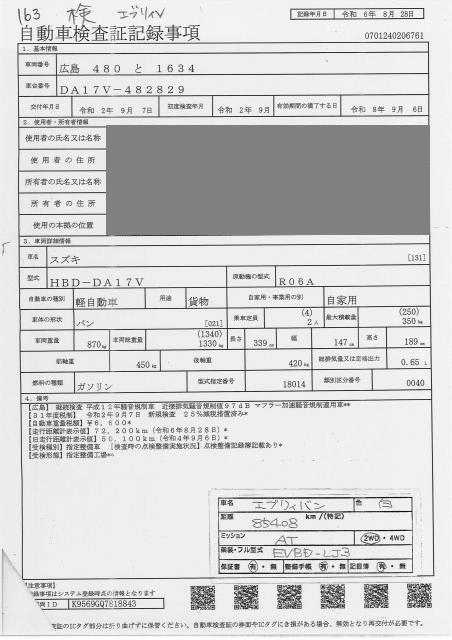 163 検 エブリィV
記録年月日 令和 6年 8月 28日
自動車検査証記録事項
0701240206761
1．基本情報
車両番号 広島 480 と 1634
車台番号 DA17V-482829
交付年月日 令和 2年 9月 7日 初度検査年月 令和 2年 9月 有効期間の満了する日 令和 8年 9月 6日
2．使用者・所有者情報
使用者の氏名又は名称
使用者の住所
所有者の氏名又は名称
所有者の住所
使用の本拠の位置
3．車両詳細情報
車名 スズキ [131]
型式 HBD-DA17V 原動機の型式 R06A
自動車の種別 軽自動車 用途 貨物 自家用・事業用の別 自家用
車体の形状 バン [021] 乗車定員 (4) 2人 最大積載量 (250) 350kg
車両重量 870kg 車両総重量 (1340) 1330kg 長さ 339cm 幅 147cm 高さ 189cm
前軸重 450kg 後軸重 420kg 総排気量又は定格出力 0.65 L
燃料の種類 ガソリン 型式指定番号 18014 類別区分番号 0040
4．備考
[広島] 継続検査 平成12年騒音規制車 近接排気騒音規制値97dB マフラー加速騒音規制適用車*
[31年度税制] 令和2年9月7日 新規検査 25%減税措置済み*
[自動車重量税額] ¥6,600*
[走行距離計表示値] 72,200km (令和6年8月28日)*
[旧走行距離計表示値] 50,100km (令和4年9月6日)*
[受検種別] 指定整備車 [検査時の点検整備実施状況] 点検整備記録簿記載あり*
[受検形態] 指定整備工場*
車名 エブリィバン 色 白
距離 85408 km／(特記)
ミッション AT 2WD・4WD
架装・フル型式 EVBD-LJ3
保証書 有・無 整備手帳 有・無 記録簿 有・無
[注意事項]
記録事項はシステム登録時点の情報となります
ID K9569GQ7818843
証のICタグ部分は折り曲げずに保管ください。自動車検査証の券面やICタグにき損がある場合、無効となり再交付が必要です。